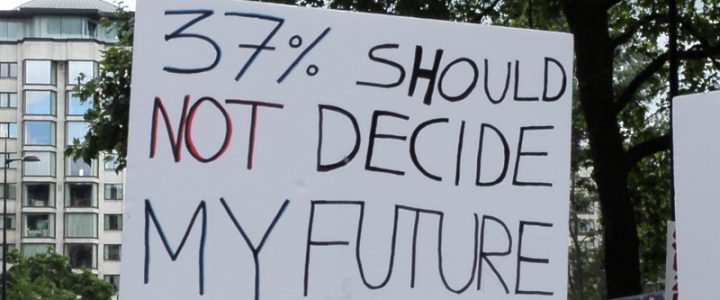 37% SHOULD
NOT DECIDE
MY FUTURE